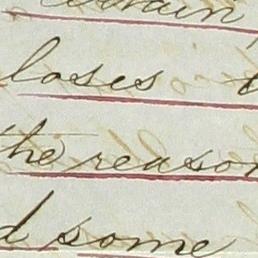 loses
the reason
d some